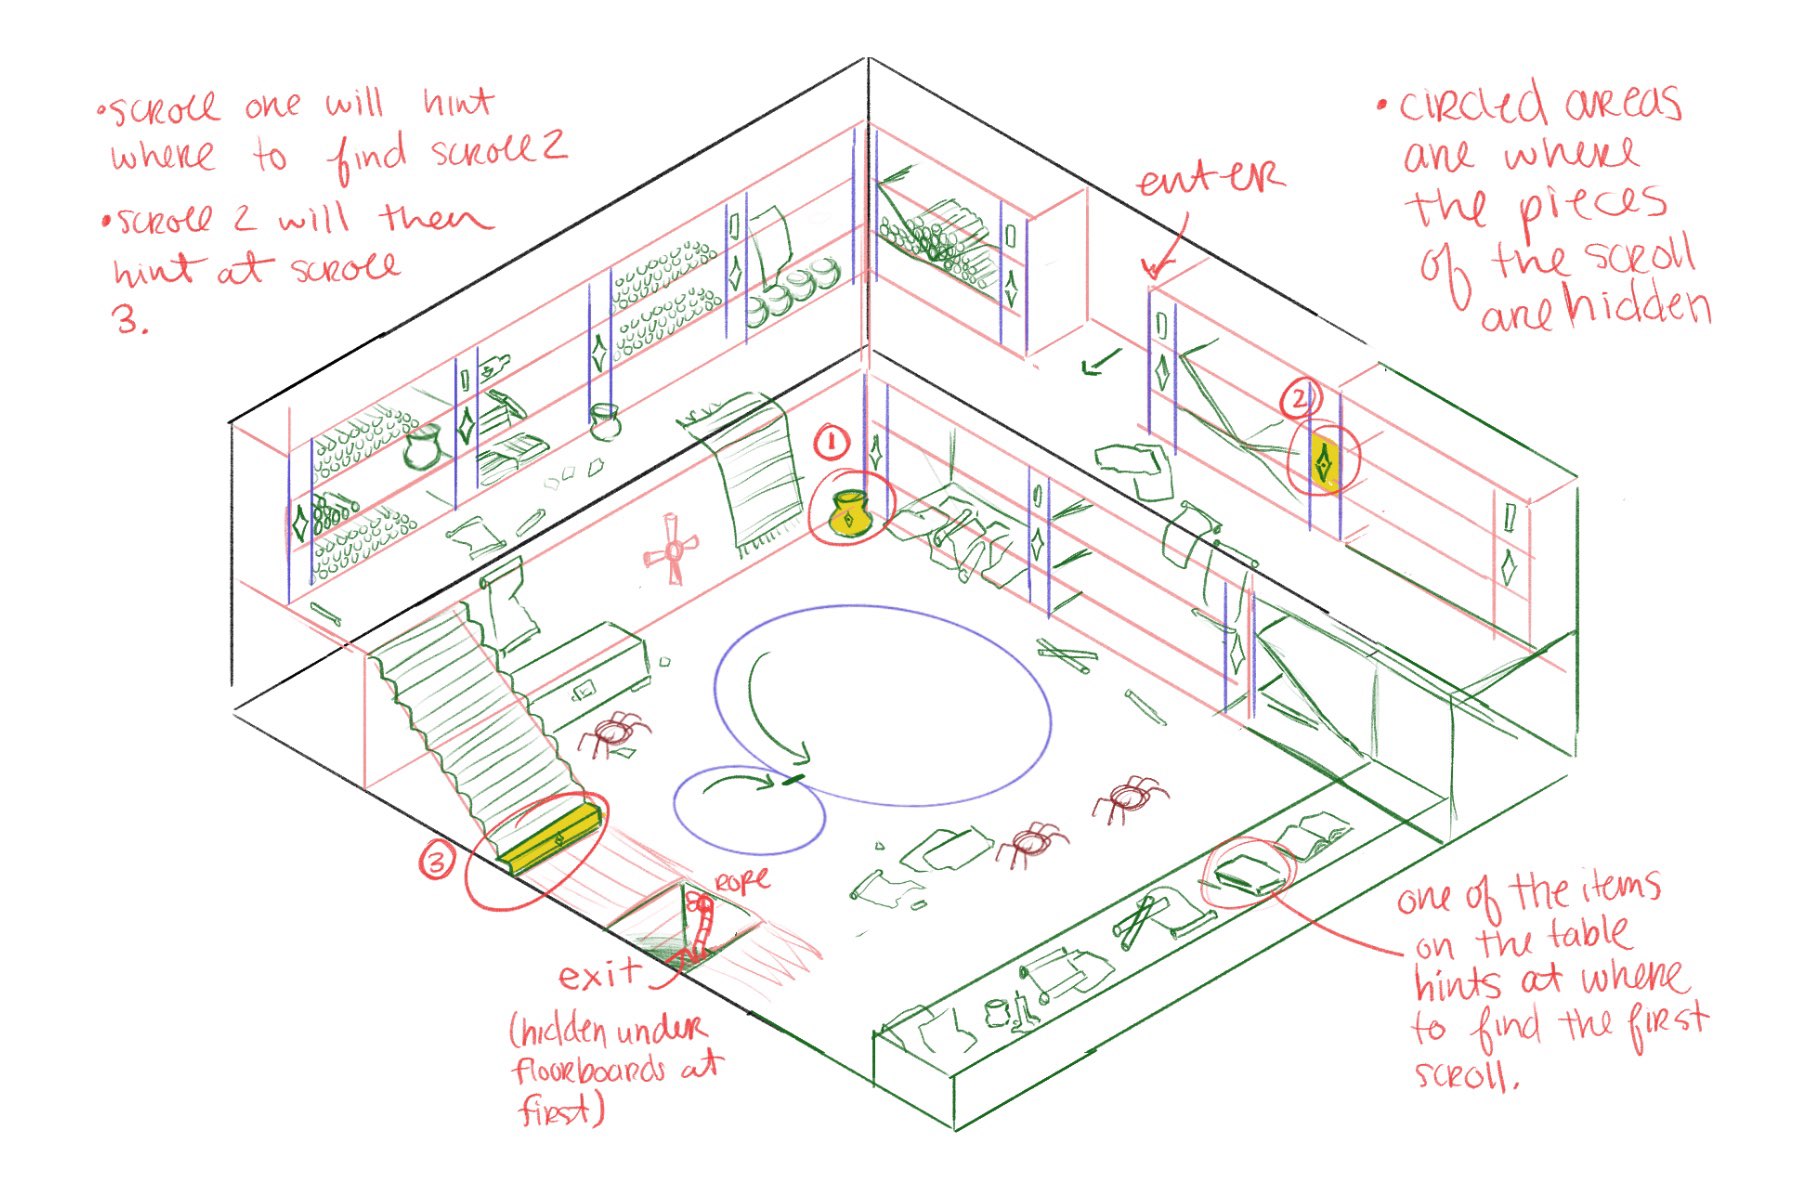 •scroll one will hint
where to find scroll 2
•scroll 2 will then
hint at scroll
3.
•circled areas
are where
the pieces
of the scroll
are hidden
enter
2
1
3
rope
exit
(hidden under
floorboards at
first)
one of the items
on the table
hints at where
to find the first
scroll.